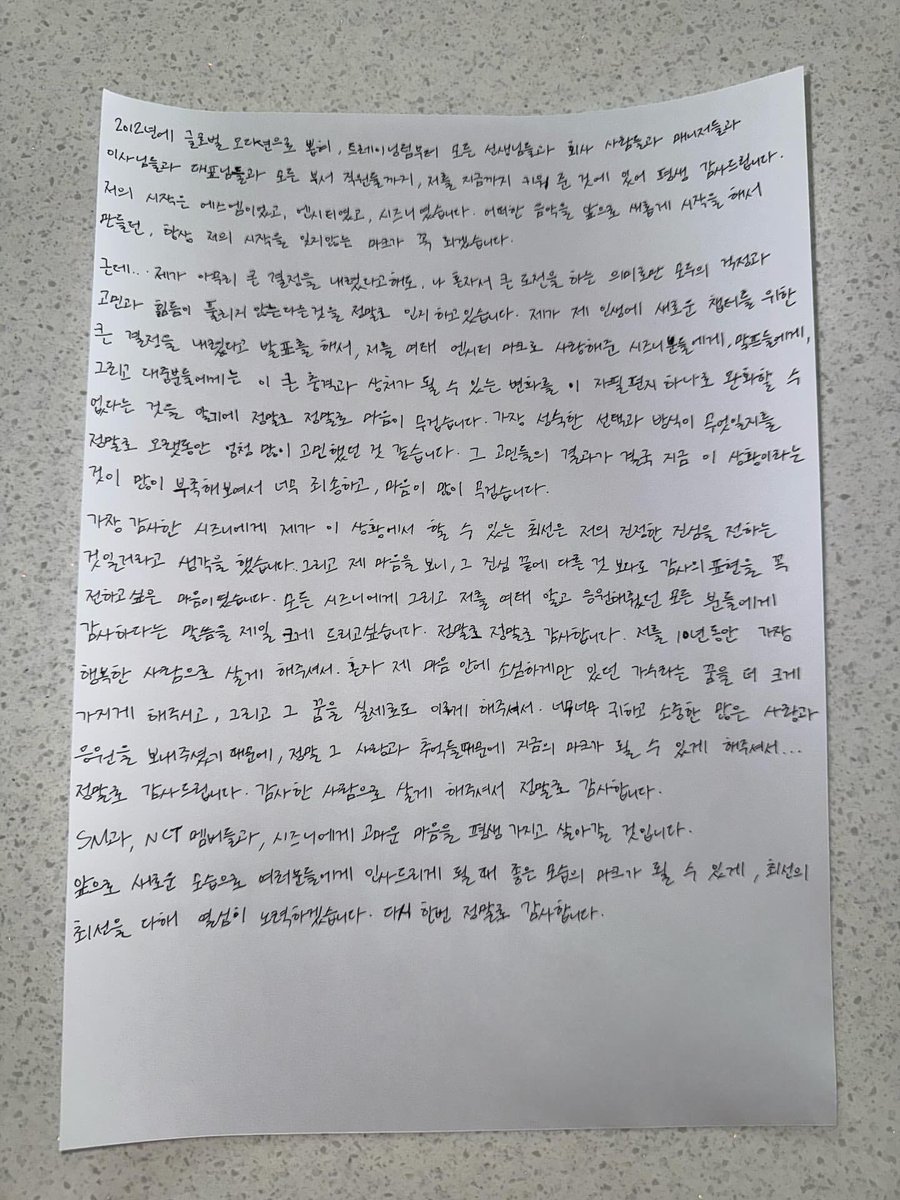 2012년에 글로벌 오디션으로 뽑혀, 트레이닝팀부터 모든 선생님들과 회사 사람들과 매니저들과
이사님들과 대표님들과 모든 부서 직원들까지, 저를 지금까지 키워 준 것에 있어 평생 감사드립니다.
저의 시작은 에스엠이었고, 엔시티였고, 시즈니였습니다. 어떠한 음악을 앞으로 새롭게 시작을 해서
만들던, 항상 저의 시작을 잊지않는 마크가 꼭 되겠습니다.
근데... 제가 아무리 큰 결정을 내렸다고해도, 나 혼자서 큰 도전을 하는 의미로만 모두의 걱정과
고민과 힘듦이 풀리지 않는다는것을 정말로 인지하고있습니다. 제가 제 인생에 새로운 챕터를 위한
큰 결정을 내렸다고 발표를 해서, 저를 여태 엔시티 마크로 사랑해준 시즈니분들에게, 말프들에게,
그리고 대중분들에게는 이 큰 충격과 상처가 될 수 있는 변화를 이 자필편지 하나로 완화할 수
없다는 것을 알기에 정말로 정말로 마음이 무겁습니다. 가장 성숙한 선택과 방식이 무엇일지를
정말로 오랫동안 엄청 많이 고민했던 것 같습니다. 그 고민들의 결과가 결국 지금 이 상황이라는
것이 많이 부족해보여서 너무 죄송하고, 마음이 많이 무겁습니다.
가장 감사한 시즈니에게 제가 이 상황에서 할 수 있는 최선은 저의 진정한 진심을 전하는
것일거라고 생각을 했습니다. 그리고 제 마음을 보니, 그 진심 끝에 다른 것 보다도 감사의 표현을 꼭
전하고 싶은 마음이었습니다. 모든 시즈니에게 그리고 저를 여태 알고 응원해줬던 모든 분들에게
감사하다는 말씀을 제일 크게 드리고싶습니다. 정말로 정말로 감사합니다. 저를 10년동안 가장
행복한 사람으로 살게 해주셔서. 혼자 제 마음 안에 소심하게만 있던 가수라는 꿈을 더 크게
가지게 해주시고, 그리고 그 꿈을 실제로도 이루게 해주셔서. 너무너무 귀하고 소중한 많은 사랑과
응원을 보내주셨기 때문에, 정말 그 사랑과 추억들때문에 지금의 마크가 될 수 있게 해주셔서...
정말로 감사드립니다. 감사한 사람으로 살게 해주셔서 정말로 감사합니다.
SM과, NCT 멤버들과, 시즈니에게 고마운 마음을 평생 가지고 살아갈 것입니다.
앞으로 새로운 모습으로 여러분들에게 인사드리게 될 때 좋은 모습의 마크가 될 수 있게, 최선의
최선을 다해 열심히 노력하겠습니다. 다시 한번 정말로 감사합니다.